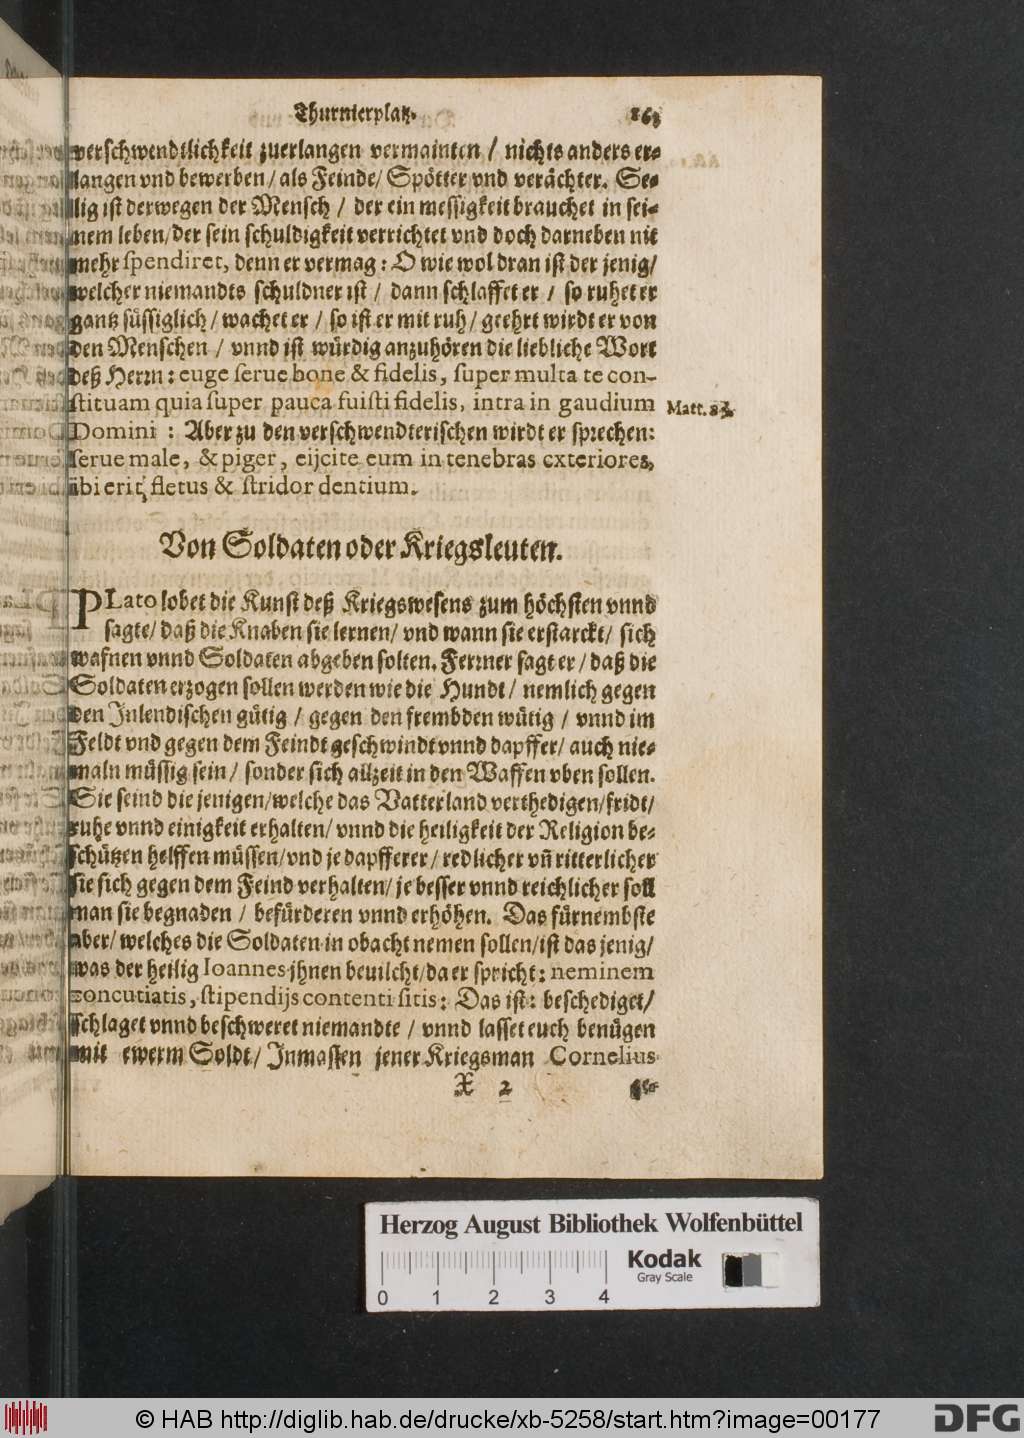 Thurnierplatz. 163
verschwendtlichkeit zuerlangen vermainten / nichts anders er-
langen vnd bewerben / als Feinde / Spötter vnd verächter. Se-
lig ist derwegen der Mensch / der ein messigkeit brauchet in sei-
nem leben / der sein schuldigkeit verrichtet vnd doch darneben nit
mehr spendiret, denn er vermag: O wie wol dran ist der jenig /
welcher niemandts schuldner ist / dann schlaffet er / so ruhet er
gantz süssiglich / wachet er / so ist er mit ruh / geehrt wirdt er von
den Menschen / vnnd ist würdig anzuhören die liebliche Wort
deß Herrn: euge serue bone & fidelis, super multa te con-
stituam quia super pauca fuisti fidelis, intra in gaudium
Matt. 25.
Domini : Aber zu den verschwendterischen wirdt er sprechen:
serue male, & piger, eijcite eum in tenebras exteriores,
ibi erit fletus & stridor dentium.
Von Soldaten oder Kriegsleuten.
PLato lobet die Kunst deß Kriegswesens zum höchsten vnnd
sagte / daß die Knaben sie lernen / vnd wann sie erstarckt / sich
wafnen vnnd Soldaten abgeben solten. Ferrner sagt er / daß die
Soldaten erzogen sollen werden wie die Hundt / nemlich gegen
den Inlendischen gütig / gegen den frembden wütig / vnnd im
Feldt vnd gegen dem Feindt geschwindt vnnd dapffer / auch nie-
maln müssig sein / sonder sich allzeit in den Waffen vben sollen.
Sie seind die jenigen / welche das Vatterland verthedigen / fridt /
ruhe vnnd einigkeit erhalten / vnnd die heiligkeit der Religion be-
schützen helffen müssen / vnd je dapfferer / redlicher vn̄ ritterlicher
sie sich gegen dem Feind verhalten / je besser vnnd reichlicher soll
man sie begnaden / befürderen vnnd erhöhen. Das fürnembste
aber / welches die Soldaten in obacht nemen sollen / ist das jenig /
was der heilig Ioannes jhnen beuilcht / da er spricht: neminem
concutiatis, stipendijs contenti sitis: Das ist: beschediget /
schlaget vnnd beschweret niemandte / vnnd lasset euch benügen
mit ewerm Soldt / Inmassen jener Kriegsman Cornelius
X 2
Herzog August Bibliothek Wolfenbüttel
Kodak
Gray Scale
0 1 2 3 4
© HAB http://diglib.hab.de/drucke/xb-5258/start.htm?image=00177
DFG